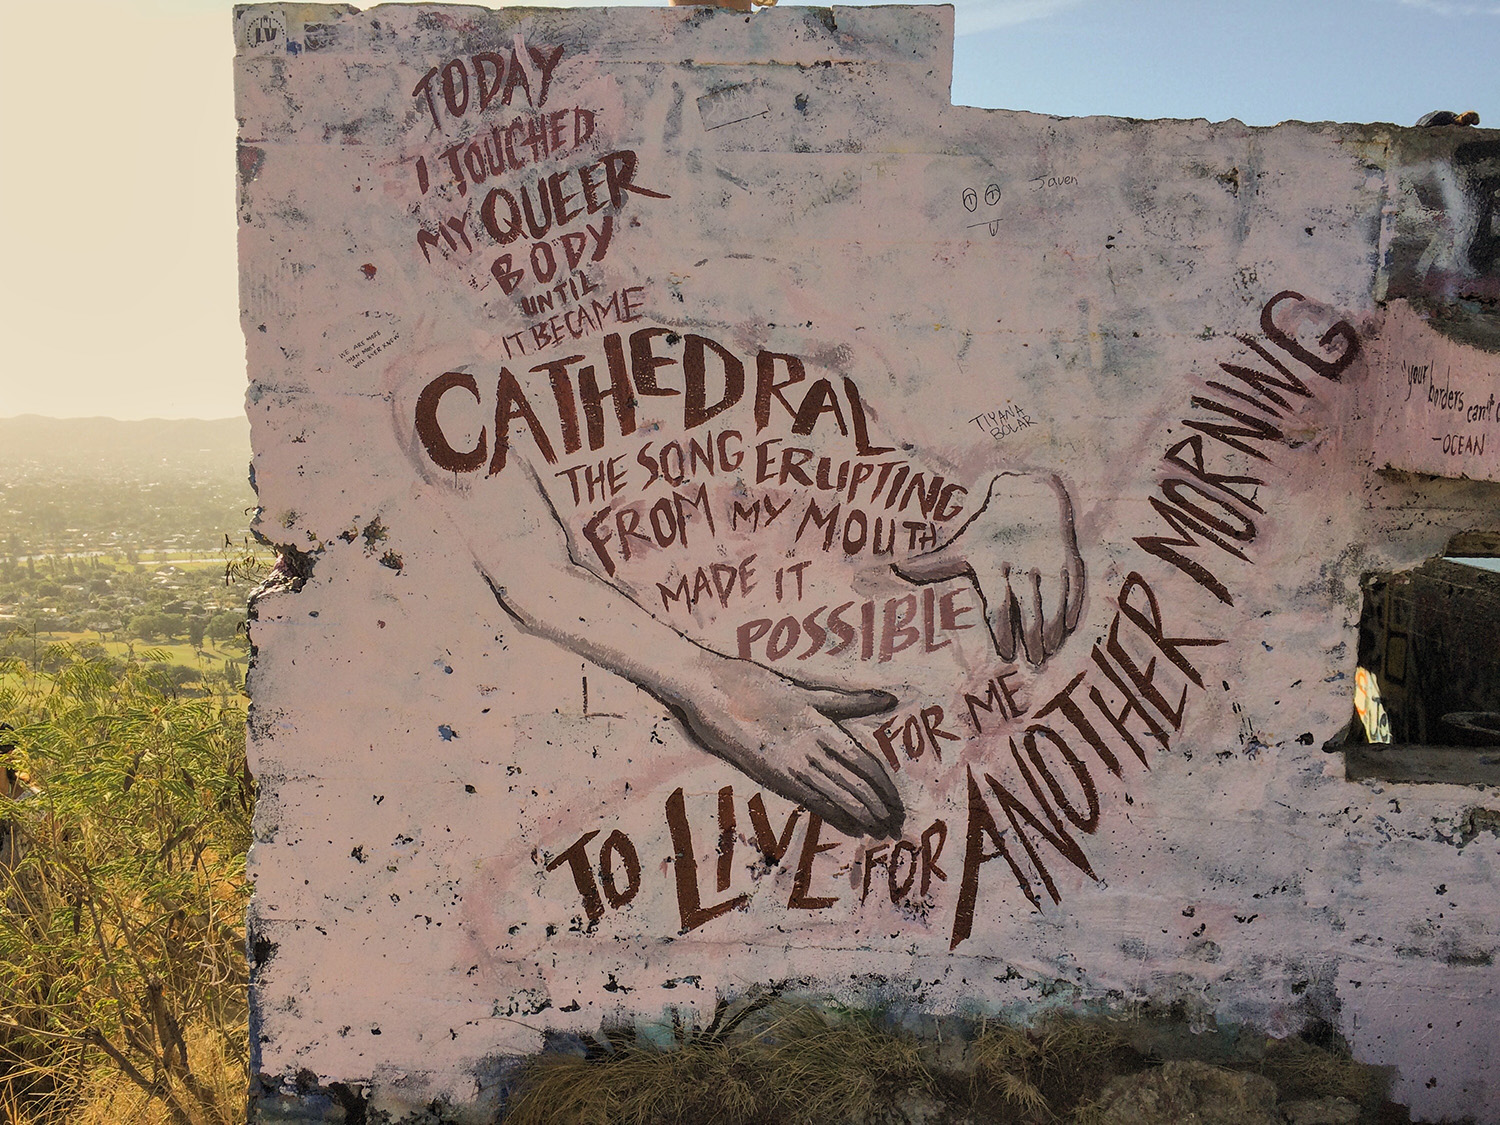 TODAY
I TOUCHED
MY QUEER
BODY
UNTIL
IT BECAME
CATHEDRAL
THE SONG ERUPTING
FROM MY MOUTH
MADE IT
POSSIBLE
FOR ME
TO LIVE FOR ANOTHER MORNING
WE ARE MORE
THAN MOST
WILL EVER KNOW
Javen
TIYANA
BOLAR
"your borders can't
-OCEAN